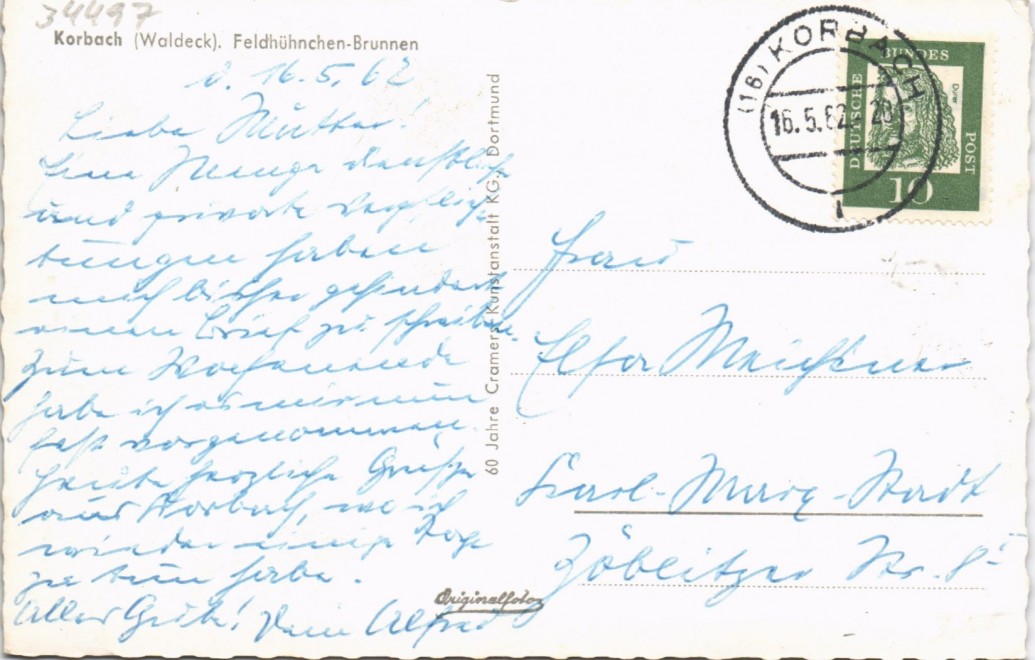 34497
Korbach (Waldeck). Feldhühnchen-Brunnen
d. 16.5.62
Liebe Mutter!
Eine Menge dienstliche
und private Verpflich-
tungen haben
mich bisher gehindert
einen Brief zu schreiben.
Zum Wochenende
habe ich es mir nun
fest vorgenommen.
Heute herzliche Grüße
aus Korbach, wo ich
wieder einige Tage
zu tun habe.
Alles Gute! Dein Alfred
60 Jahre Cramers Kunstanstalt KG., Dortmund
Originalfoto
(16) KORBACH
16.5.62. 20
1
DEUTSCHE
BUNDES
POST
Dürer
10
Frau
Elsa
Karl-Marx-Stadt
Zöblitzer Str.